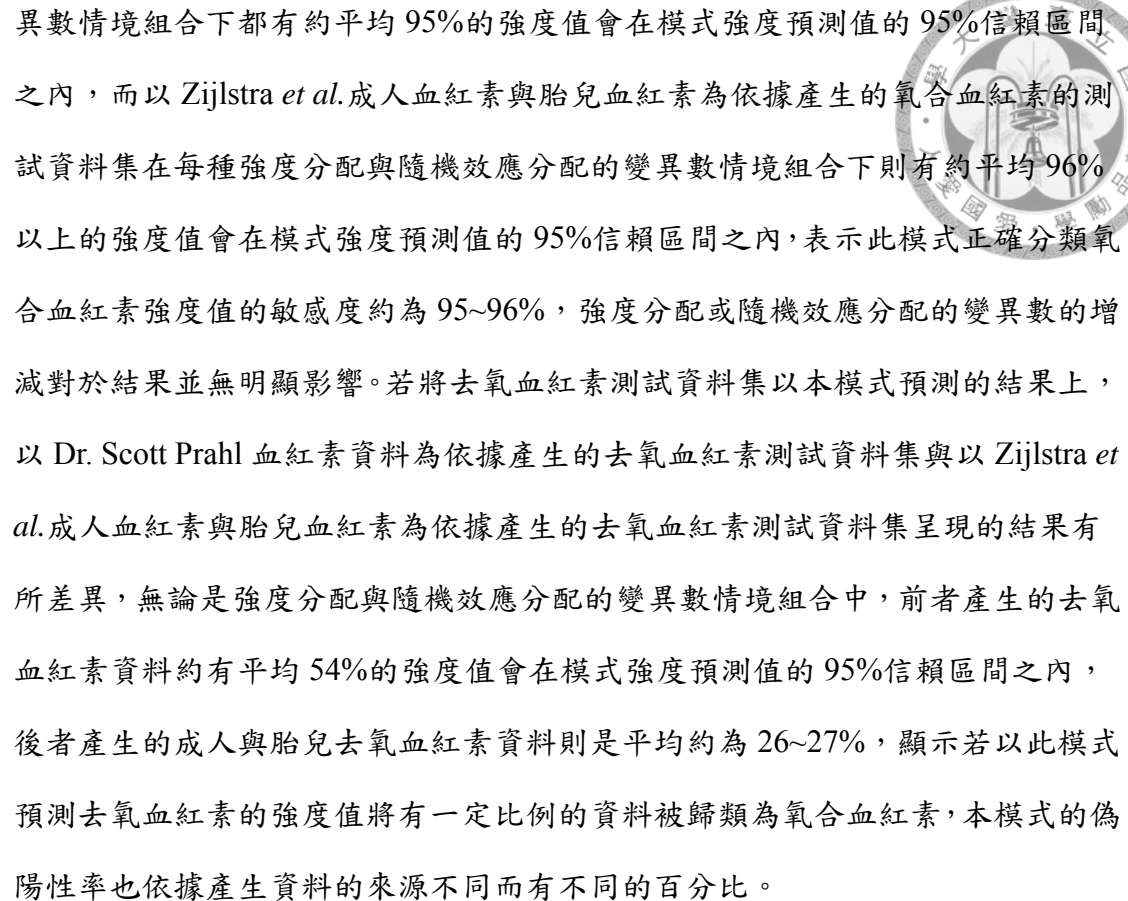 異數情境組合下都有約平均 95%的強度值會在模式強度預測值的 95%信賴區間
之內，而以 Zijlstra et al.成人血紅素與胎兒血紅素為依據產生的氧合血紅素的測
試資料集在每種強度分配與隨機效應分配的變異數情境組合下則有約平均 96%
以上的強度值會在模式強度預測值的 95%信賴區間之內，表示此模式正確分類氧
合血紅素強度值的敏感度約為 95~96%，強度分配或隨機效應分配的變異數的增
減對於結果並無明顯影響。若將去氧血紅素測試資料集以本模式預測的結果上，
以 Dr. Scott Prahl 血紅素資料為依據產生的去氧血紅素測試資料集與以 Zijlstra et
al.成人血紅素與胎兒血紅素為依據產生的去氧血紅素測試資料集呈現的結果有
所差異，無論是強度分配與隨機效應分配的變異數情境組合中，前者產生的去氧
血紅素資料約有平均 54%的強度值會在模式強度預測值的 95%信賴區間之內，
後者產生的成人與胎兒去氧血紅素資料則是平均約為 26~27%，顯示若以此模式
預測去氧血紅素的強度值將有一定比例的資料被歸類為氧合血紅素，本模式的偽
陽性率也依據產生資料的來源不同而有不同的百分比。